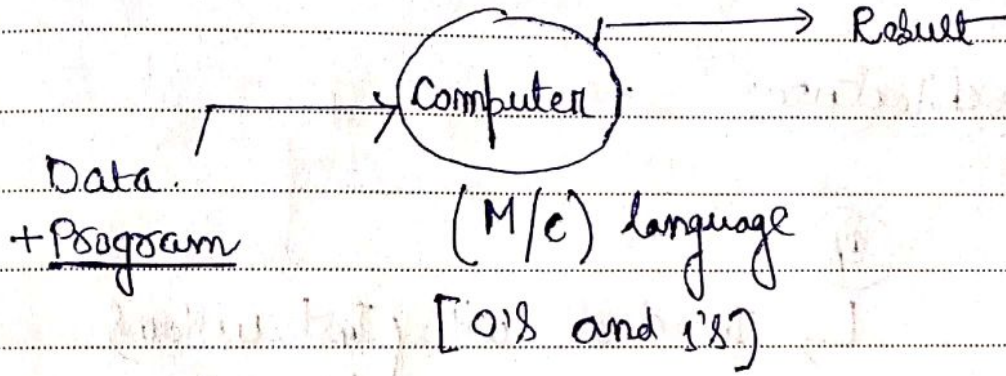 Result
Computer
Data.
+Program
(M/c) language
[0's and 1's)